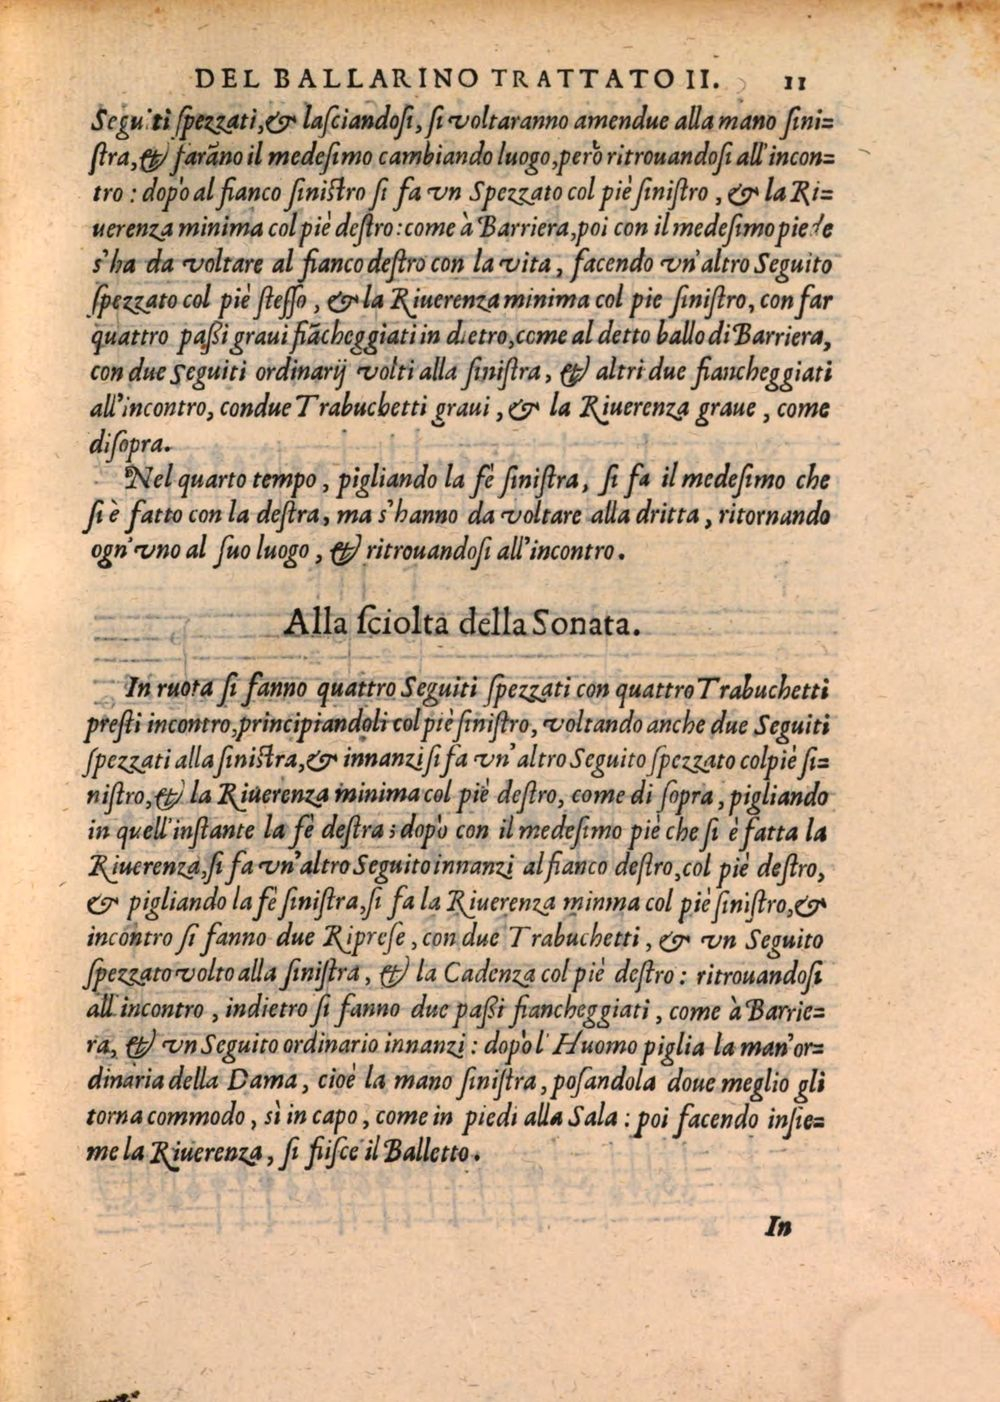 DEL BALLARINO TRATTATO II. 11
Seguiti ſpezzati, & laſciandoſi, ſi voltaranno amendue alla mano ſini=
ſtra, & farãno il medeſimo cambiando luogo, però ritrouandoſi all'incon=
tro : dopò al fianco ſiniſtro ſi fa vn Spezzato col piè ſiniſtro , & la Ri=
uerenza minima col piè deſtro: come à Barriera, poi con il medeſimo piede
s'ha da voltare al fianco deſtro con la vita , facendo vn'altro Seguito
ſpezzato col piè ſteſſo , & la Riuerenza minima col pie ſiniſtro, con far
quattro paßi graui fiãcheggiati in dietro, come al detto ballo di Barriera,
con due Seguiti ordinarij volti alla ſiniſtra, & altri due fiancheggiati
all'incontro, con due Trabuchetti graui , & la Riuerenza graue , come
diſopra.
Nel quarto tempo , pigliando la fè ſiniſtra, ſi fa il medeſimo che
ſi è fatto con la deſtra, ma s'hanno da voltare alla dritta , ritornando
ogn'vno al ſuo luogo , & ritrouandoſi all'incontro .
Alla ſciolta della Sonata.
In ruota ſi fanno quattro Seguiti ſpezzati con quattro Trabuchetti
preſti incontro, principiandoli col piè ſiniſtro, voltando anche due Seguiti
ſpezzati alla ſiniſtra, & innanzi ſi fa vn'altro Seguito ſpezzato col piè ſi=
niſtro, & la Riuerenza minima col piè deſtro, come di ſopra , pigliando
in quell'inſtante la fè deſtra : dopò con il medeſimo piè che ſi è fatta la
Riuerenza, ſi fa vn'altro Seguito innanzi al fianco deſtro, col piè deſtro,
& pigliando la fè ſiniſtra, ſi fa la Riuerenza minma col piè ſiniſtro, &
incontro ſi fanno due Ripreſe , con due Trabuchetti , & vn Seguito
ſpezzato volto alla ſiniſtra , & la Cadenza col piè deſtro : ritrouandoſi
all'incontro , indietro ſi fanno due paßi fiancheggiati , come à Barrie=
ra, & vn Seguito ordinario innanzi : dopò l'Huomo piglia la man'or=
dinaria della Dama , cioè la mano ſiniſtra , poſandola doue meglio gli
torna commodo , sì in capo , come in piedi alla Sala : poi facendo inſie=
me la Riuerenza , ſi fiiſce il Balletto .
In